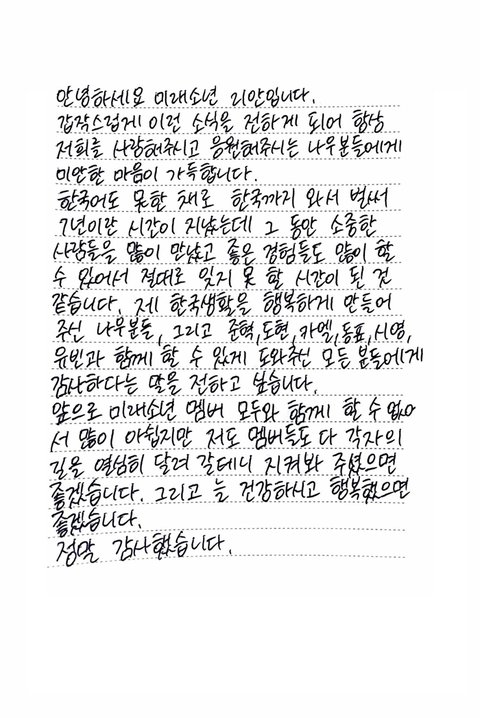 안녕하세요 미래소년 리안입니다.
갑작스럽게 이런 소식을 전하게 되어 항상
저희를 사랑해주시고 응원해주시는 나우분들에게
미안한 마음이 가득합니다.
한국어도 못한 채로 한국까지 와서 벌써
7년이란 시간이 지났는데 그 동안 소중한
사람들을 많이 만났고 좋은 경험들도 많이 할
수 있어서 절대로 잊지 못 할 시간이 된 것
같습니다. 제 한국생활을 행복하게 만들어
주신 나우분들, 그리고 준혁,도현,카엘,동표,시영,
유빈과 함께 할 수 있게 도와주신 모든 분들에게
감사하다는 말을 전하고 싶습니다.
앞으로 미래소년 멤버 모두와 함께 할 수 없어
서 많이 아쉽지만 저도 멤버들도 다 각자의
길을 열심히 달려 갈테니 지켜봐 주셨으면
좋겠습니다. 그리고 늘 건강하시고 행복했으면
좋겠습니다.
정말 감사했습니다.